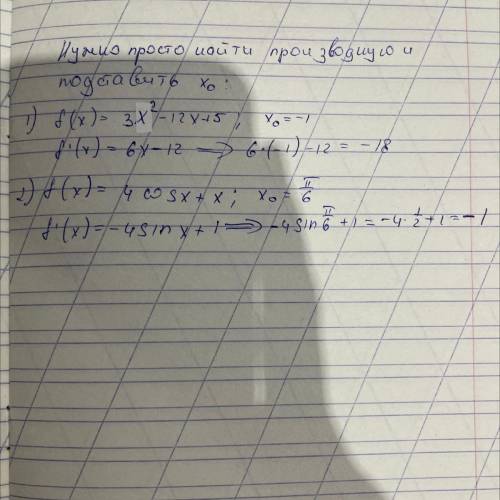 Нужно просто найти производную и
подставить x₀:
1) f(x) = 3x² - 12x + 5; x₀ = -1
f'(x) = 6x - 12 ⟹ 6·(-1) - 12 = -18
2) f(x) = 4 cosx + x; x₀ = π/6
f'(x) = -4 sin x + 1 ⟹ -4 sin π/6 + 1 = -4 · 1/2 + 1 = -1